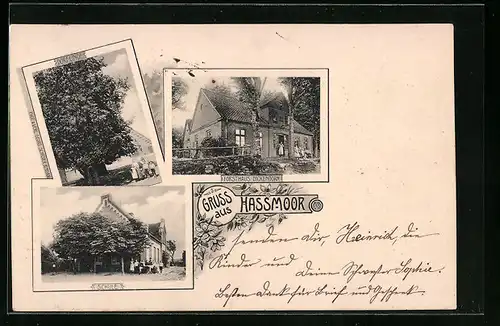 FORSTHAUS DICKENDÖRN
GRUSS
aus HASSMOOR
senden Dir, Heinrich, die
Kinder und Deine Schwester Sophie.
Besten Dank für Brief und Geschenk.
SCHULE